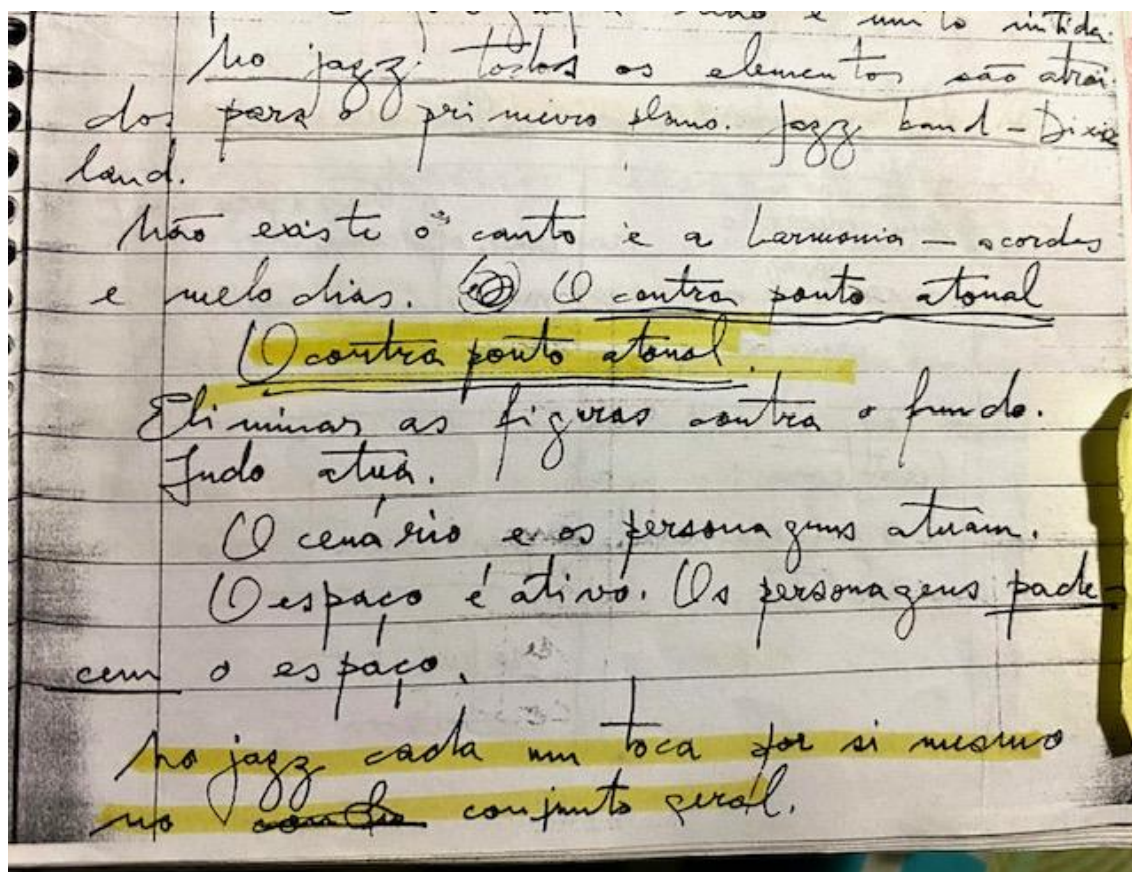 não é muito nítida.
No jazz todos os elementos são atraí
dos para o primeiro plano. Jazz band - Dixie
land.
Não existe o canto e a harmonia — acordes
e melodias. O contra ponto atonal
O contra ponto atonal.
Eliminar as figuras contra o fundo.
Tudo atua.
O cenário e os personagens atuam.
O espaço é ativo. Os personagens pade-
cem o espaço.
No jazz cada um toca por si mesmo
no conjunto geral.